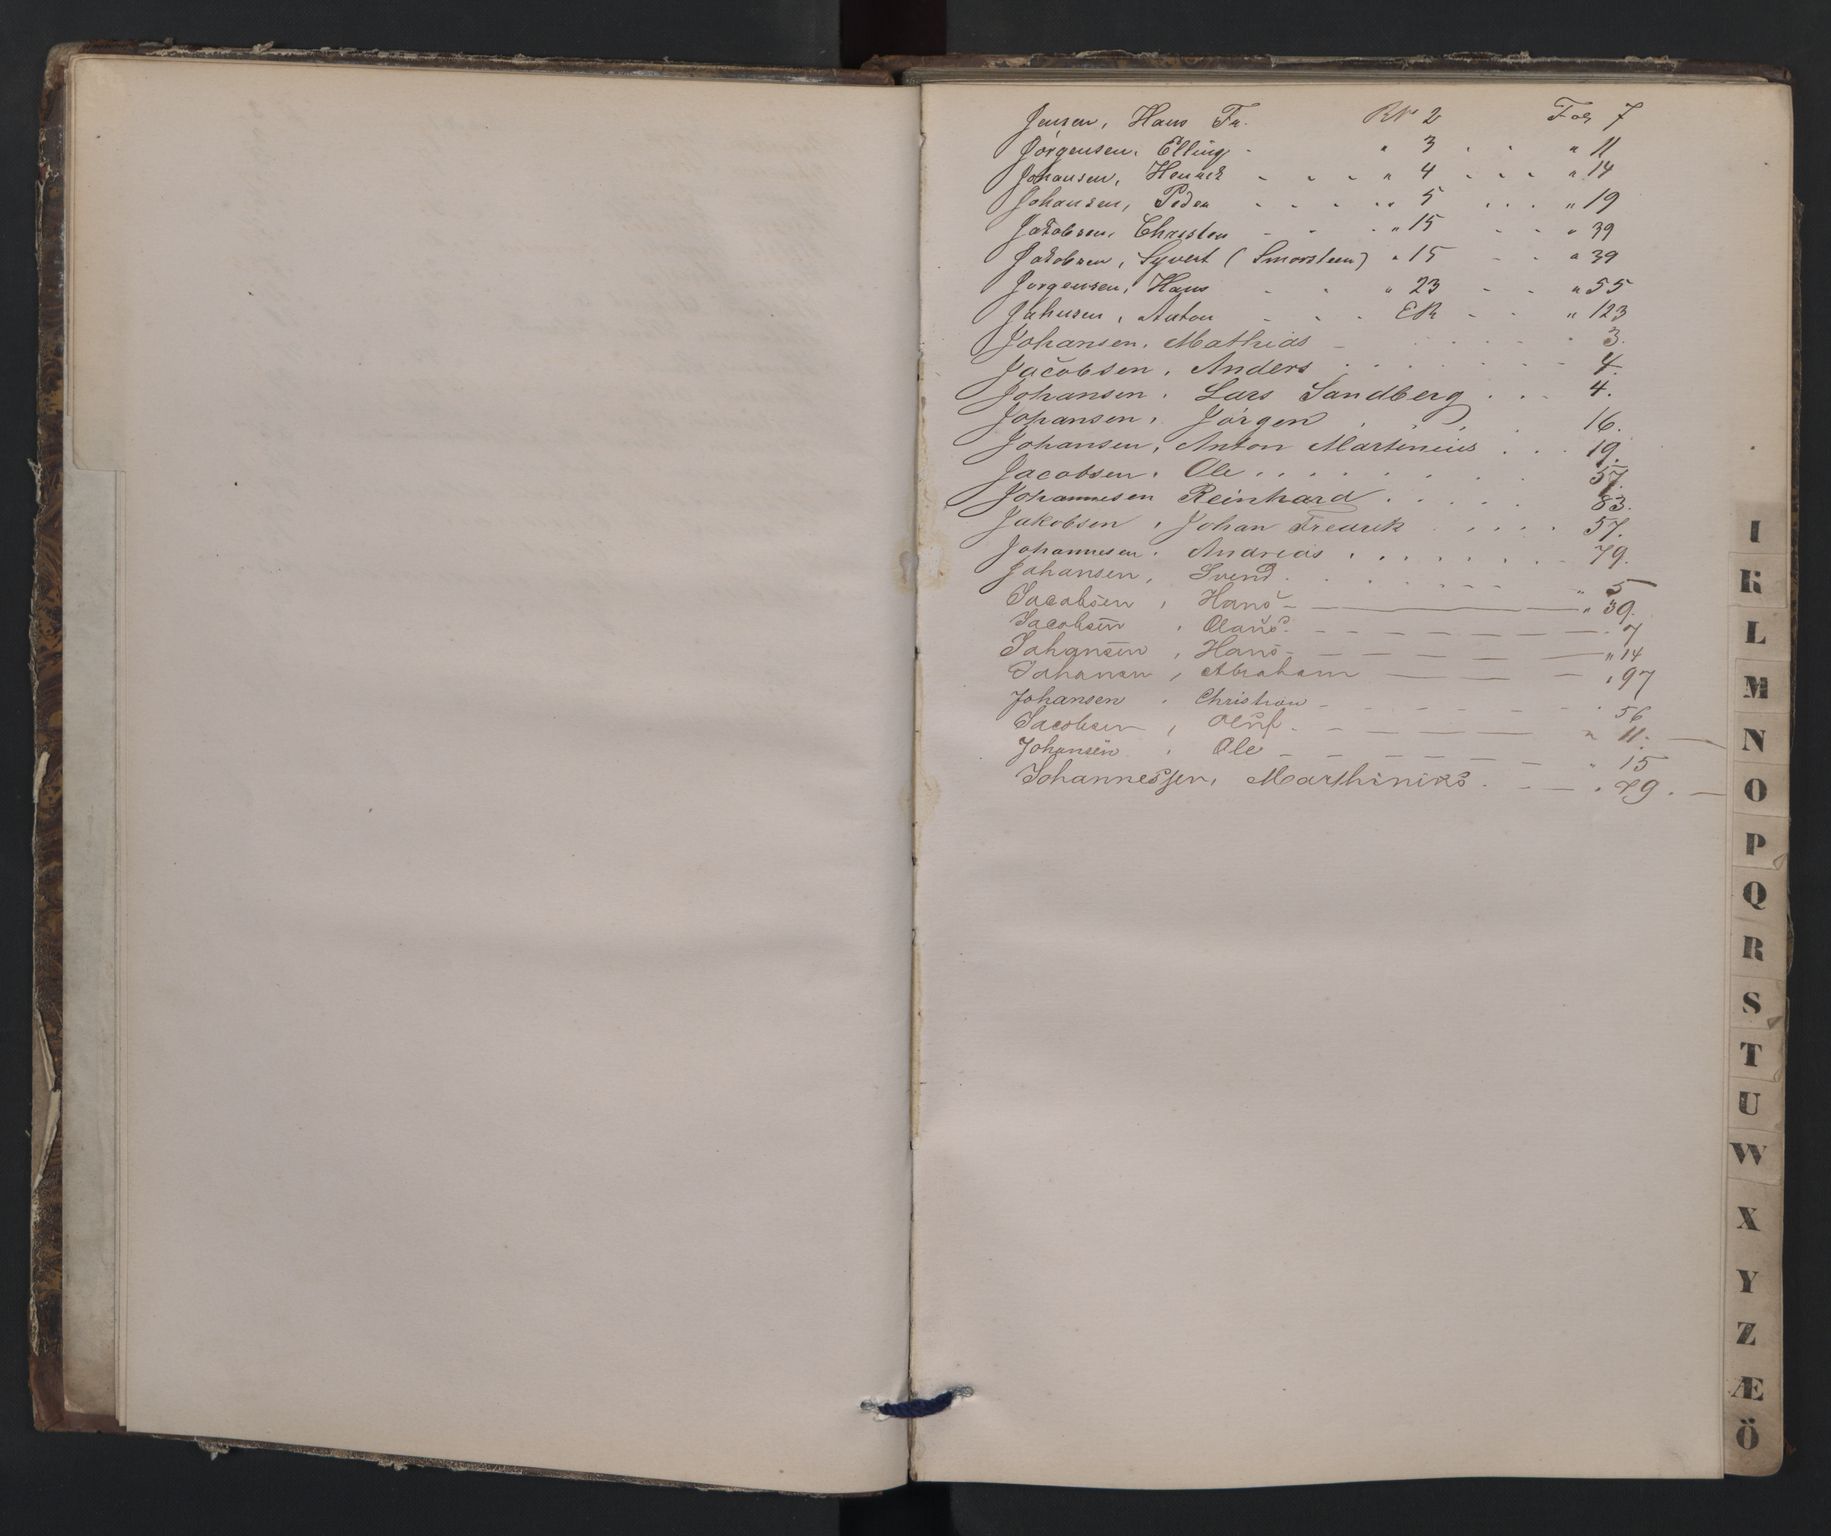 Jensen, Hans Fr. RNo 2 Fol 7
Jørgensen, Elling - " 3 . . " 11
Johansen, Henrik - - - " 4 - - - " 14
Johansen, Peder - - - - " 5 . . . " 19
Jakobsen, Christen - - - " 15 - - " 39
Jakobsen, Syvert (Smorsteen) " 15 - - " 39
Jørgensen, Hans - - " 23 - - " 55
Johnsen, Anton - - - ER - - " 123
Johansen, Mathias - . . . . . " 3.
Jacobsen, Anders . . . . . . . 4.
Johansen, Lars Sandberg . . . 4.
Johansen, Jörgen . . . . 16.
Johansen, Anton Martinius . . . 19.
Jacobsen, Ole . . . . . . . 57.
Johannesen Reinhard . . . . . 83.
Jakobsen, Johan Fredrik . . . . . 57.
Johannesen, Andreas . . . . . . . 79.
Johansen, Svend . . . . . . " 5
Jacobsen, Hans - - - - " 39.
Jacobsen, Olaus - - - - - - - - " 7
Johansen, Hans - - - - - - " 14
Johansen, Abraham - - - - " 97
Johansen, Christian - - - - - - " 56
Jacobsen, Oluf - - - - - - " 11. -
Johansen, Ole - - - - - - " 15
Johannessen, Marthinius - - - " 79. -
I
K
L
M
N
O
P
Q
R
S
T
U
W
X
Y
Z
Æ
Ö